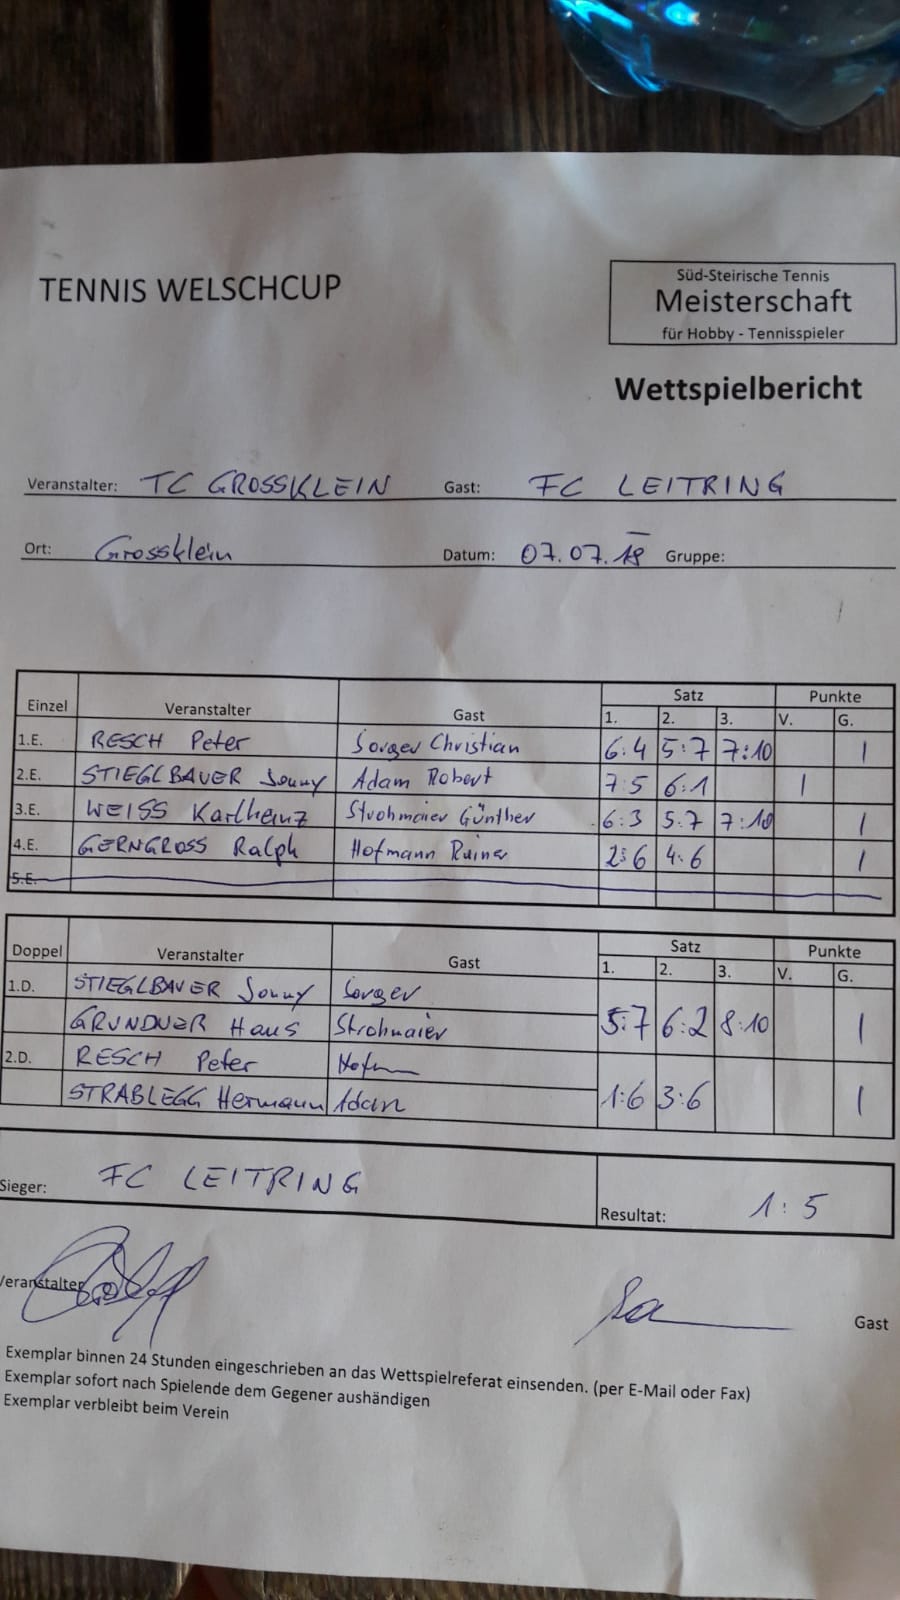 TENNIS WELSCHCUP
Süd-Steirische Tennis
Meisterschaft
für Hobby - Tennisspieler
Wettspielbericht
Veranstalter: TC GROSSKLEIN Gast: FC LEITRING
Ort: Grossklein Datum: 07.07.18 Gruppe:
Einzel Veranstalter Gast Satz Punkte
1. 2. 3. V. G.
1.E. RESCH Peter Sorger Christian 6:4 5:7 7:10 1
2.E. STIEGLBAUER Sonny Adam Robert 7:5 6:1 1
3.E. WEISS Karlheinz Strohmaier Günther 6:3 5:7 7:10 1
4.E. GERNGROSS Ralph Hofmann Rainer 2:6 4:6 1
5.E.
Doppel Veranstalter Gast Satz Punkte
1. 2. 3. V. G.
1.D. STIEGLBAUER Sonny Sorger
GRUNDNER Hans Strohmaier 5:7 6:2 8:10 1
2.D. RESCH Peter
STRABLEGG Hermann Adam 1:6 3:6 1
Sieger: FC LEITRING Resultat: 1:5
Veranstalter Gast
Exemplar binnen 24 Stunden eingeschrieben an das Wettspielreferat einsenden. (per E-Mail oder Fax)
Exemplar sofort nach Spielende dem Gegener aushändigen
Exemplar verbleibt beim Verein